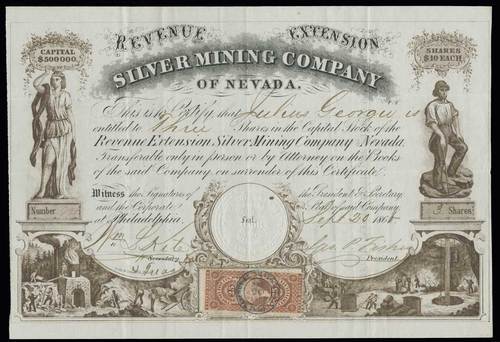 CAPITAL
$500000.
REVENUE EXTENSION
SHARES
$10 EACH.
SILVER MINING COMPANY
OF NEVADA.
This is to Certify, that Julius Georgii is
entitled to Three Shares in the Capital Stock of the
Revenue Extension Silver Mining Company Nevada.
Transferable only in person or by Attorney on the Books
of the said Company on surrender of this Certificate.
Witness the Signatures of the President & Secretary
and the Corporate Seal of said Company
at Philadelphia. Sept 20 186
Number
3 Shares
Seal.
Secretary
President